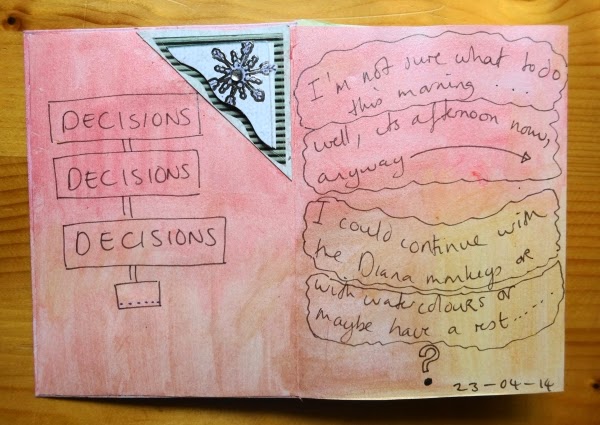 DECISIONS
DECISIONS
DECISIONS
.......
I'm not sure what to do
this morning .....
well, its afternoon now,
anyway
I could continue with
the Diana monkeys or
with watercolours or
maybe have a rest......
?
23-04-14